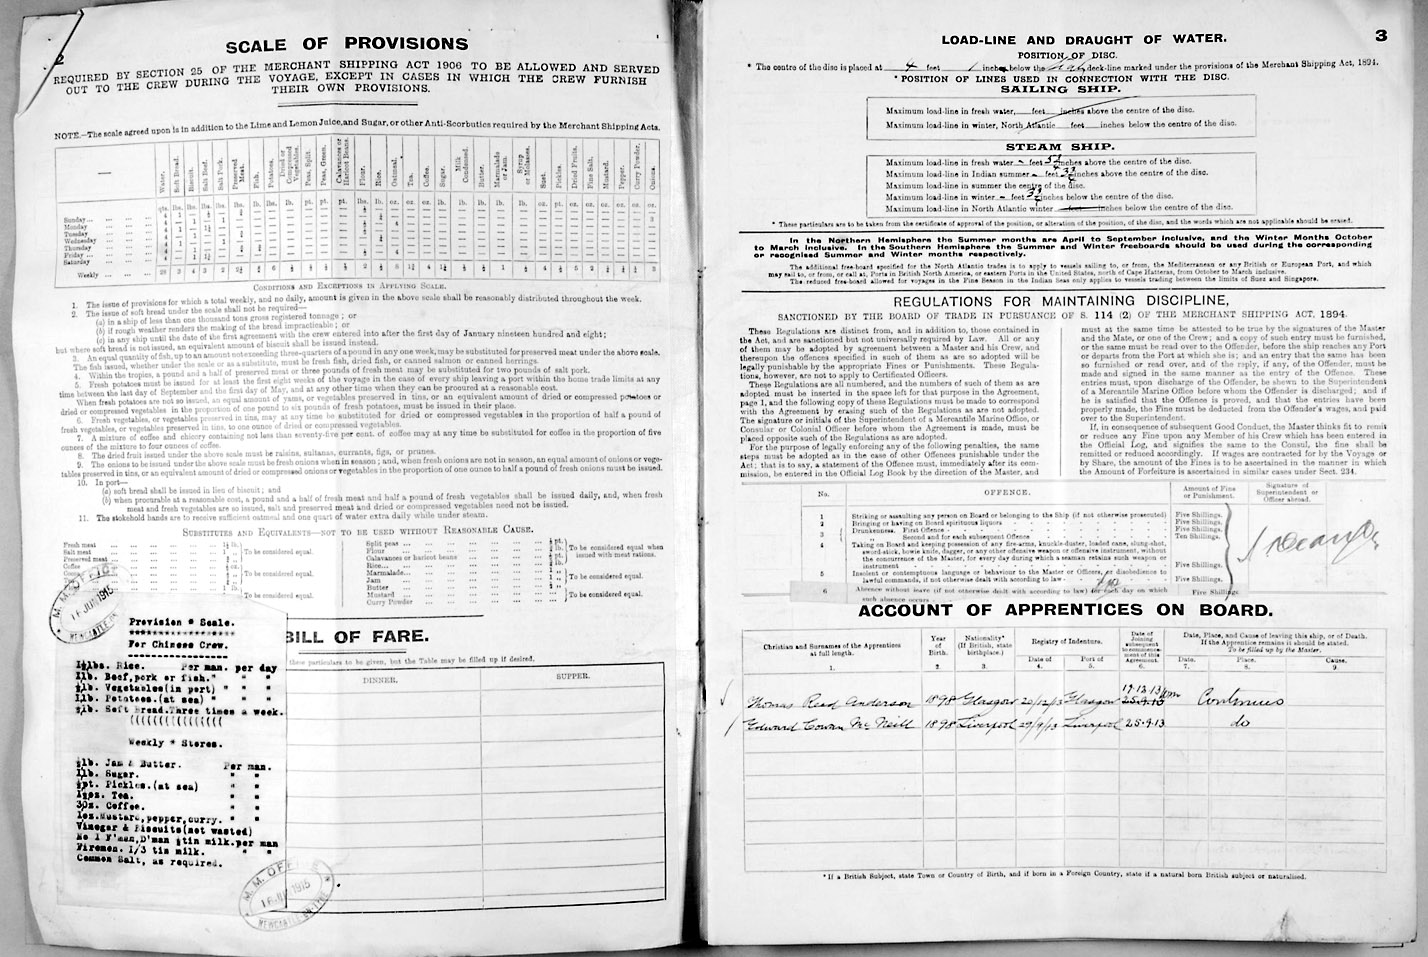 2
SCALE OF PROVISIONS
REQUIRED BY SECTION 25 OF THE MERCHANT SHIPPING ACT 1906 TO BE ALLOWED AND SERVED
OUT TO THE CREW DURING THE VOYAGE, EXCEPT IN CASES IN WHICH THE CREW FURNISH
THEIR OWN PROVISIONS.
NOTE.—The scale agreed upon is in addition to the Lime and Lemon Juice, and Sugar, or other Anti-Scorbutics required by the Merchant Shipping Acts.
Water. Soft Bread. Biscuit. Salt Beef. Salt Pork. Preserved Meat. Fish. Potatoes. Dried or Compressed Vegetables. Peas, Split. Peas, Green. Calavances or Haricot Beans. Flour. Rice. Oatmeal. Tea. Coffee. Sugar. Milk Condensed. Butter. Marmalade or Jam. Syrup or Molasses. Suet. Pickles. Dried Fruits. Fine Salt. Mustard. Pepper. Curry Powder. Onions.
Sunday
Monday
Tuesday
Wednesday
Thursday
Friday
Saturday
Weekly
CONDITIONS AND EXCEPTIONS IN APPLYING SCALE.
1. The issue of provisions for which a total weekly, and no daily, amount is given in the above scale shall be reasonably distributed throughout the week.
2. The issue of soft bread under the scale shall not be required—
(a) in a ship of less than one thousand tons gross registered tonnage; or
(b) if rough weather renders the making of the bread impracticable; or
(c) in any ship until the date of the first agreement with the crew entered into after the first day of January nineteen hundred and eight;
but where soft bread is not issued, an equivalent amount of biscuit shall be issued instead.
3. An equal quantity of fish, up to an amount not exceeding three-quarters of a pound in any one week, may be substituted for preserved meat under the above scale.
The fish issued, whether under the scale or as a substitute, must be fresh fish, dried fish, or canned salmon or canned herrings.
4. Within the tropics, a pound and a half of preserved meat or three pounds of fresh meat may be substituted for two pounds of salt pork.
5. Fresh potatoes must be issued for at least the first eight weeks of the voyage in the case of every ship leaving a port within the home trade limits at any
time between the last day of September and the first day of May, and at any other time when they can be procured at a reasonable cost.
When fresh potatoes are not so issued, an equal amount of yams, or vegetables preserved in tins, or an equivalent amount of dried or compressed potatoes or
dried or compressed vegetables in the proportion of one pound to six pounds of fresh potatoes, must be issued in their place.
6. Fresh vegetables, or vegetables preserved in tins, may at any time be substituted for dried or compressed vegetables in the proportion of half a pound of
fresh vegetables, or vegetables preserved in tins, to one ounce of dried or compressed vegetables.
7. A mixture of coffee and chicory containing not less than seventy-five per cent. of coffee may at any time be substituted for coffee in the proportion of five
ounces of the mixture to four ounces of coffee.
8. The dried fruit issued under the above scale must be raisins, sultanas, currants, figs, or prunes.
9. The onions to be issued under the above scale must be fresh onions when in season; and, when fresh onions are not in season, an equal amount of onions or vege-
tables preserved in tins, or an equivalent amount of dried or compressed onions or vegetables in the proportion of one ounce to half a pound of fresh onions must be issued.
10. In port—
(a) soft bread shall be issued in lieu of biscuit; and
(b) when procurable at a reasonable cost, a pound and a half of fresh meat and half a pound of fresh vegetables shall be issued daily, and, when fresh
meat and fresh vegetables are so issued, salt and preserved meat and dried or compressed vegetables need not be issued.
11. The stokehold hands are to receive sufficient oatmeal and one quart of water extra daily while under steam.
SUBSTITUTES AND EQUIVALENTS—NOT TO BE USED WITHOUT REASONABLE CAUSE.
Fresh meat
Salt meat
Preserved meat
To be considered equal.
Coffee
To be considered equal.
Split peas
Flour
Calavances or haricot beans
Rice
To be considered equal when issued with meat rations.
Marmalade
Jam
Butter
To be considered equal.
Mustard
Curry Powder
To be considered equal.
M. M. OFFICE
16 JUN 1915
NEWCASTLE
BILL OF FARE.
these particulars to be given, but the Table may be filled up if desired.
DINNER. SUPPER.
Provision * Scale.
For Chinese Crew.
1½lbs. Rice. Per man. per day
1lb. Beef,pork or fish." " "
½lb. Vegetables(in port) " " "
1lb. Potatoes.(at sea) " " "
½lb. Soft Bread.Three times a week.
Weekly * Stores.
½lb. Jam & Butter. Per man.
1lb. Sugar. " "
½pt. Pickles.(at sea) " "
1½oz. Tea. " "
3oz. Coffee. " "
1oz.Mustard,pepper,curry. " "
Vinegar & Biscuits(not wasted)
No 1 F'man,D'man ½tin milk.per man
Firemen. 1/3 tin milk. " "
Common Salt, as required.
M. M. OFFICE
16 JUN 1915
NEWCASTLE-ON-TYNE
3
LOAD-LINE AND DRAUGHT OF WATER.
POSITION OF DISC.
* The centre of the disc is placed at 4 feet 1 inches below the deck-line marked under the provisions of the Merchant Shipping Act, 1894.
* POSITION OF LINES USED IN CONNECTION WITH THE DISC.
SAILING SHIP.
Maximum load-line in fresh water, feet inches above the centre of the disc.
Maximum load-line in winter, North Atlantic feet inches below the centre of the disc.
STEAM SHIP.
Maximum load-line in fresh water – feet inches above the centre of the disc.
Maximum load-line in Indian summer – feet inches above the centre of the disc.
Maximum load-line in summer the centre of the disc.
Maximum load-line in winter – feet inches below the centre of the disc.
Maximum load-line in North Atlantic winter feet inches below the centre of the disc.
* These particulars are to be taken from the certificate of approval of the position, or alteration of the position, of the disc, and the words which are not applicable should be erased.
In the Northern Hemisphere the Summer months are April to September inclusive, and the Winter Months October
to March inclusive. In the Southern Hemisphere the Summer and Winter freeboards should be used during the corresponding
or recognised Summer and Winter months respectively.
The additional free-board specified for the North Atlantic trades is to apply to vessels sailing to, or from, the Mediterranean or any British or European Port, and which
may sail to, or from, or call at, Ports in British North America, or eastern Ports in the United States, north of Cape Hatteras, from October to March inclusive.
The reduced free-board allowed for voyages in the Fine Season in the Indian Seas only applies to vessels trading between the limits of Suez and Singapore.
REGULATIONS FOR MAINTAINING DISCIPLINE,
SANCTIONED BY THE BOARD OF TRADE IN PURSUANCE OF S. 114 (2) OF THE MERCHANT SHIPPING ACT, 1894.
These Regulations are distinct from, and in addition to, those contained in
the Act, and are sanctioned but not universally required by Law. All or any
of them may be adopted by agreement between a Master and his Crew, and
thereupon the offences specified in such of them as are so adopted will be
legally punishable by the appropriate Fines or Punishments. These Regula-
tions, however, are not to apply to Certificated Officers.
These Regulations are all numbered, and the numbers of such of them as are
adopted must be inserted in the space left for that purpose in the Agreement,
page 1, and the following copy of these Regulations must be made to correspond
with the Agreement by erasing such of the Regulations as are not adopted.
The signature or initials of the Superintendent of a Mercantile Marine Office, or
Consular or Colonial Officer before whom the Agreement is made, must be
placed opposite such of the Regulations as are adopted.
For the purpose of legally enforcing any of the following penalties, the same
steps must be adopted as in the case of other Offences punishable under the
Act; that is to say, a statement of the Offence must, immediately after its com-
mission, be entered in the Official Log Book by the direction of the Master, and
must at the same time be attested to be true by the signatures of the Master
and the Mate, or one of the Crew; and a copy of such entry must be furnished,
or the same must be read over to the Offender, before the ship reaches any Port
or departs from the Port at which she is; and an entry that the same has been
so furnished or read over, and of the reply, if any, of the Offender, must be
made and signed in the same manner as the entry of the Offence. These
entries must, upon discharge of the Offender, be shewn to the Superintendent
of a Mercantile Marine Office before whom the Offender is discharged; and if
he is satisfied that the Offence is proved, and that the entries have been
properly made, the Fine must be deducted from the Offender's wages, and paid
over to the Superintendent.
If, in consequence of subsequent Good Conduct, the Master thinks fit to remit
or reduce any Fine upon any Member of his Crew which has been entered in
the Official Log, and signifies the same to the Consul, the fine shall be
remitted or reduced accordingly. If wages are contracted for by the Voyage or
by Share, the amount of the Fines is to be ascertained in the manner in which
the Amount of Forfeiture is ascertained in similar cases under Sec. 234.
No. OFFENCE. Amount of Fine or Punishment. Signature of Superintendent or Officer aboard.
1 Striking or assaulting any person on Board or belonging to the Ship (if not otherwise prosecuted) Five Shillings.
2 Bringing or having on Board spirituous liquors Five Shillings.
3 Drunkenness. First Offence Five Shillings.
" Second and for each subsequent Offence Ten Shillings.
4 Taking on Board and keeping possession of any fire-arms, knuckle-duster, loaded cane, slung-shot,
sword-stick, bowie knife, dagger, or any other offensive weapon or offensive instrument, without
the concurrence of the Master, for every day during which a seaman retains such weapon or
instrument Five Shillings.
5 Insolent or contemptuous language or behaviour to the Master or Officers, or disobedience to
lawful commands, if not otherwise dealt with according to law Five Shillings.
6 Absence without leave (if not otherwise dealt with according to law) for each day on which
such absence occurs Five Shillings
ACCOUNT OF APPRENTICES ON BOARD.
Christian and Surnames of the Apprentices at full length. Year of Birth. Nationality* (If British, state birthplace.) Registry of Indenture. Date of Port of Date of Joining subsequent to commencement of this Agreement. Date, Place, and Cause of leaving this ship, or of Death. If the Apprentice remains it should be stated. To be filled up by the Master. Date. Place. Cause.
1. 2. 3. 4. 5. 6. 7. 8. 9.
17.12.13
Thomas Read Anderson 1898 Glasgow 20/12/13 Glasgow 25.9.13 Continues
Edward Cowan McNeill 1898 Liverpool 29/9/13 Liverpool 25.9.13 do
* If a British Subject, state Town or Country of Birth, and if born in a Foreign Country, state if a natural born British subject or naturalised.